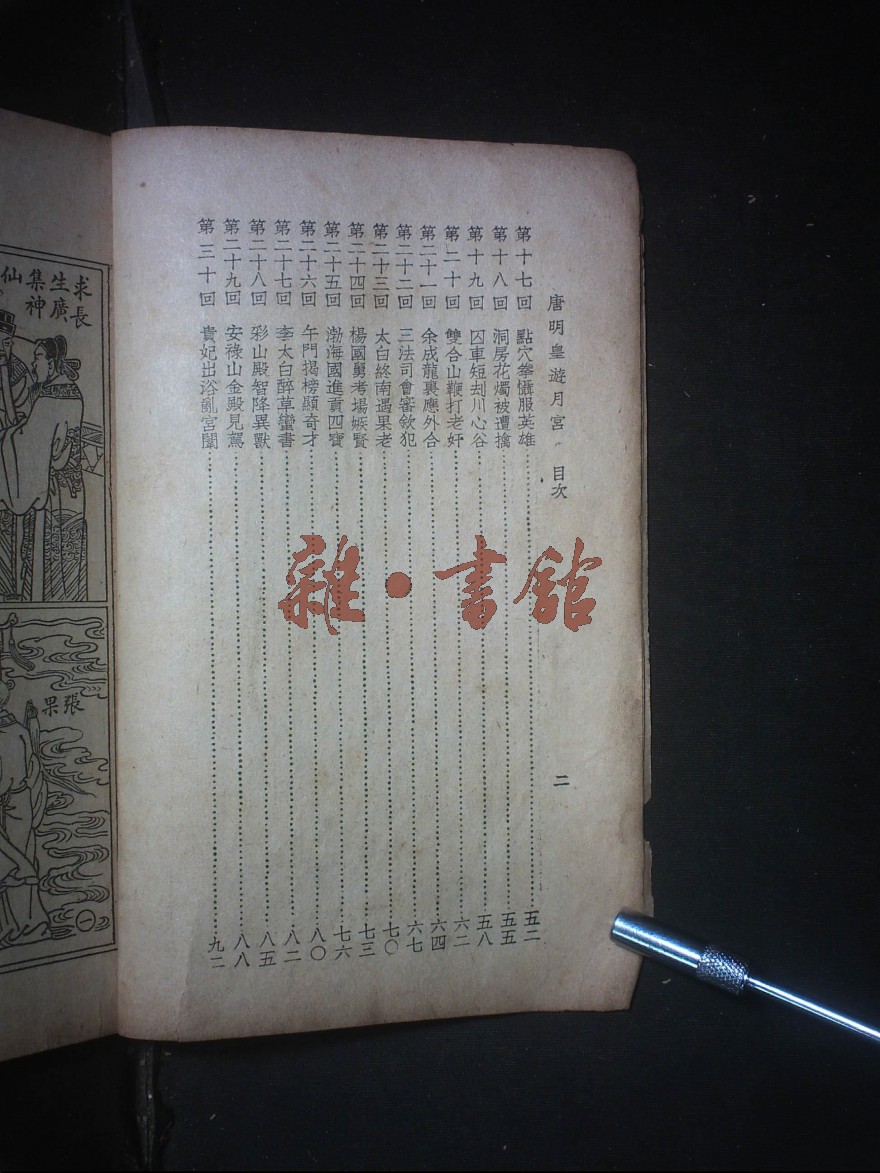 唐明皇遊月宮 目次
二
第十七回 點穴拳懾服英雄 五二
第十八回 洞房花燭被遭擒 五五
第十九回 囚車短刦川心谷 五八
第二十回 雙合山鞭打老奸 六二
第二十一回 余成龍裏應外合 六四
第二十二回 三法司會審欽犯 六七
第二十三回 太白終南遇果老 七〇
第二十四回 楊國舅考場嫉賢 七三
第二十五回 渤海國進貢四寶 七六
第二十六回 午門揭榜顯奇才 八〇
第二十七回 李太白醉草蠻書 八二
第二十八回 彩山殿智降異獸 八五
第二十九回 安祿山金殿見駕 八八
第三十回 貴妃出浴亂宮闈 九二
雜·書館
求長
生廣
集神
仙
張
果
一